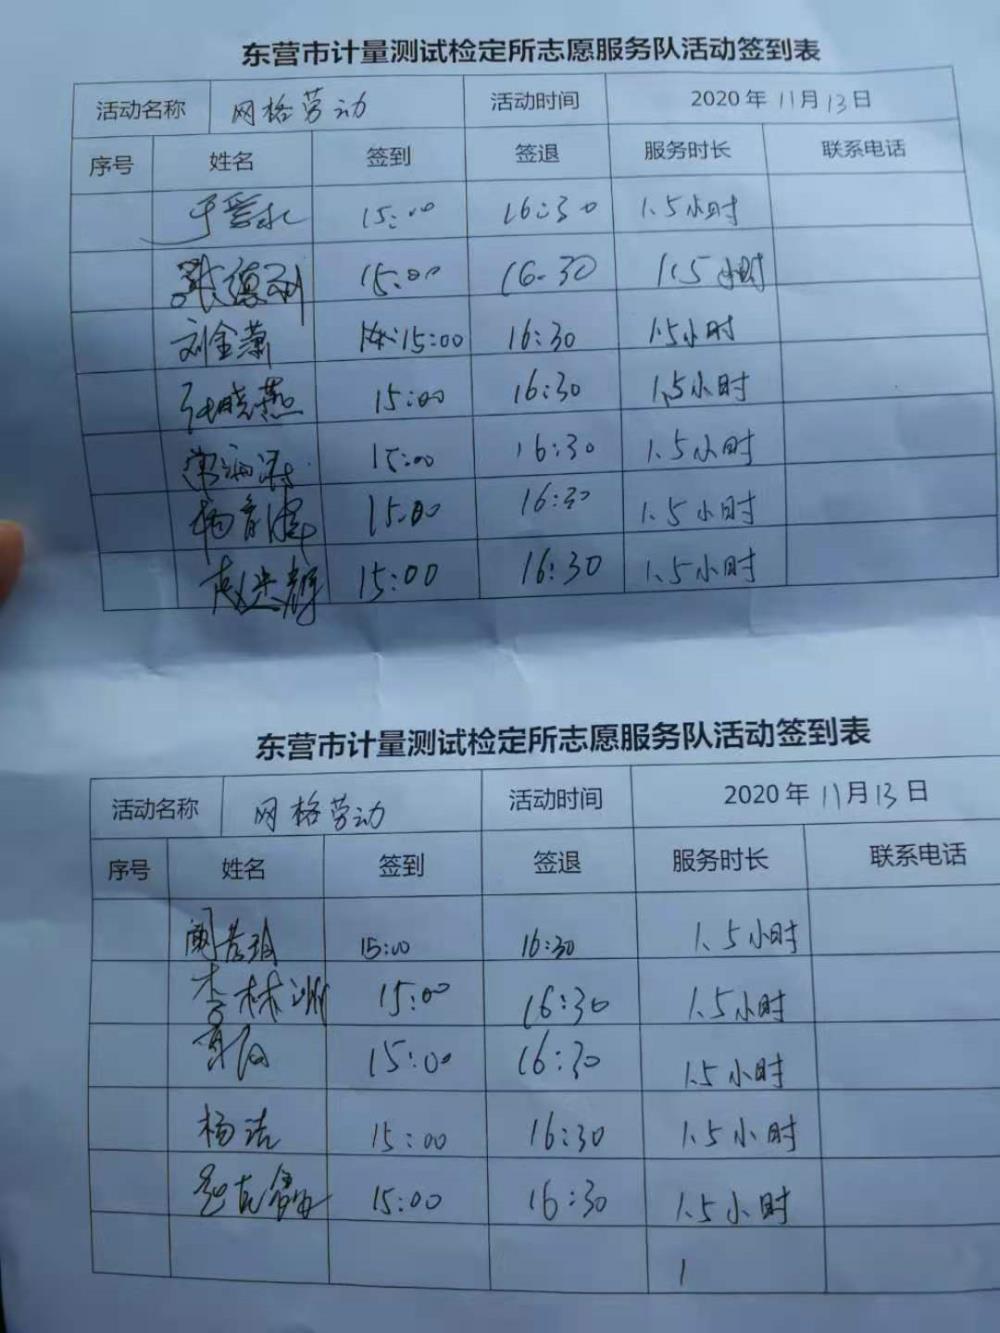 东营市计量测试检定所志愿服务队活动签到表
活动名称 网格劳动 活动时间 2020年11月13日
序号 姓名 签到 签退 服务时长 联系电话
15:00 16:30 1.5小时
15:00 16:30 1.5小时
刘金萧 15:00 16:30 1.5小时
张晓燕 15:00 16:30 1.5小时
15:00 16:30 1.5小时
15:00 16:30 1.5小时
15:00 16:30 1.5小时
东营市计量测试检定所志愿服务队活动签到表
活动名称 网格劳动 活动时间 2020年11月13日
序号 姓名 签到 签退 服务时长 联系电话
15:00 16:30 1.5小时
李林洲 15:00 16:30 1.5小时
15:00 16:30 1.5小时
杨洁 15:00 16:30 1.5小时
15:00 16:30 1.5小时
1